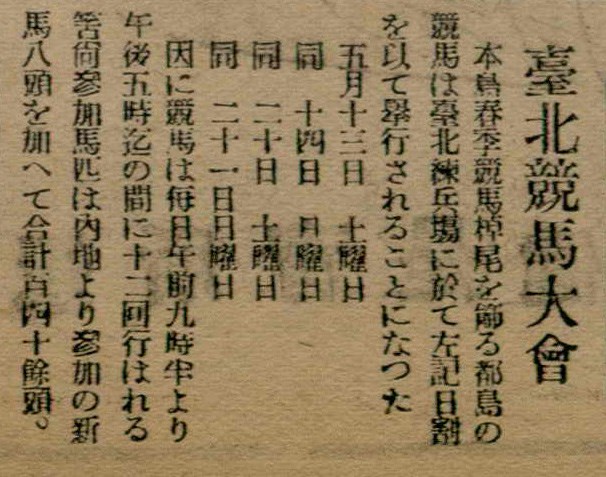 臺北競馬大會
本島春季競馬掉尾を飾る都島の
競馬は臺北練兵場に於て左記日割
を以て擧行されることになつた
五月十三日 土曜日
同 十四日 日曜日
同 二十日 土曜日
同 二十一日日曜日
因に競馬は每日午前九時半より
午後五時迄の間に十二回行はれる
筈尙參加馬匹は內地より參加の新
馬八頭を加へて合計百四十餘頭。